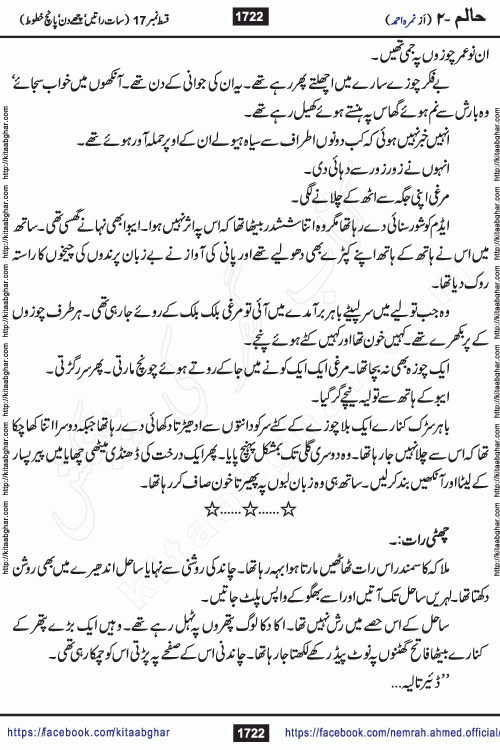 حالم -۲ (از نمرہ احمد) 1722 قسط نمبر 17 (سات راتیں، چھے دن، پانچ خطوط)
ان نو عمر چوزوں پہ جمی تھیں۔
بے فکر چوزے سارے میں اچھلتے پھر رہے تھے۔ یہ ان کی جوانی کے دن تھے۔ آنکھوں میں خواب سجائے،
وہ بارش سے نم ہوئے گھاس پہ ہنستے ہوئے کھیل رہے تھے۔
انہیں خبر نہیں ہوئی کہ کب دونوں اطراف سے سیاہ ہیولے ان کے اوپر حملہ آور ہوئے تھے۔
انہوں نے زور زور سے دہائی دی۔
مرغی اپنی جگہ سے اٹھ کے چلانے لگی۔
ایڈم کو شور سنائی دے رہا تھا مگر وہ اتنا ششدر بیٹھا تھا کہ اس پہ اثر نہیں ہوا۔ ایبو ابھی نہانے گھسی تھی۔ ساتھ
میں اس نے ہاتھ کے ہاتھ اپنے کپڑے بھی دھولیے تھے اور پانی کی آواز نے بے زبان پرندوں کی چیخوں کا راستہ
روک دیا تھا۔
وہ جب تولیے میں سر لپیٹے باہر برآمدے میں آئی تو مرغی بلک بلک کے روئے جا رہی تھی۔ ہر طرف چوزوں
کے پر بکھرے تھے۔ کہیں خون تھا اور کہیں کٹے ہوئے پنجے۔
ایک چوزہ بھی نہ بچا تھا۔ مرغی ایک ایک کونے میں جا کے روتے ہوئے چونچ مارتی۔ پھر سر رگڑتی۔
ایبو کے ہاتھ سے تولیہ نیچے گر گیا۔
باہر سڑک کنارے ایک بلا چوزے کے کٹے سر کو دانتوں سے ادھیڑتا دکھائی دے رہا تھا جبکہ دوسرا اتنا کھا چکا
تھا کہ اس سے چلا نہیں جا رہا تھا۔ وہ دوسری گلی تک بمشکل پہنچ پایا۔ پھر ایک درخت کی ٹھنڈی میٹھی چھایا میں پیر پسار
کے لیٹا اور آنکھیں بند کر لیں۔ ساتھ ہی وہ زبان لبوں پہ پھیرتا خون صاف کر رہا تھا۔
☆......☆......☆
چھٹی رات:۔
ملاکہ کا سمندر اس رات ٹھاٹھیں مارتا ہوا بہہ رہا تھا۔ چاند کی روشنی سے نہایا ساحل اندھیرے میں بھی روشن
دکھتا تھا۔ لہریں ساحل تک آتیں اور اسے بھگو کے واپس پلٹ جاتیں۔
ساحل کے اس حصے میں رش نہیں تھا۔ اکا دکا لوگ پتھروں پہ ٹہل رہے تھے۔ وہیں ایک بڑے پتھر کے
کنارے بیٹھا فاتح گھٹنوں پہ نوٹ پیڈ رکھے لکھتا جا رہا تھا۔ چاندنی اس کے صفحے پہ پڑتی اس کو چمکا رہی تھی۔
"ڈئیر تالیہ...
https://facebook.com/kitaabghar 1722 https://facebook.com/nemrah.ahmed.official/
http://kitaabghar.com http://kitaabghar.com http://kitaabghar.com http://kitaabghar.com http://kitaabghar.com
http://kitaabghar.com http://kitaabghar.com http://kitaabghar.com http://kitaabghar.com http://kitaabghar.com